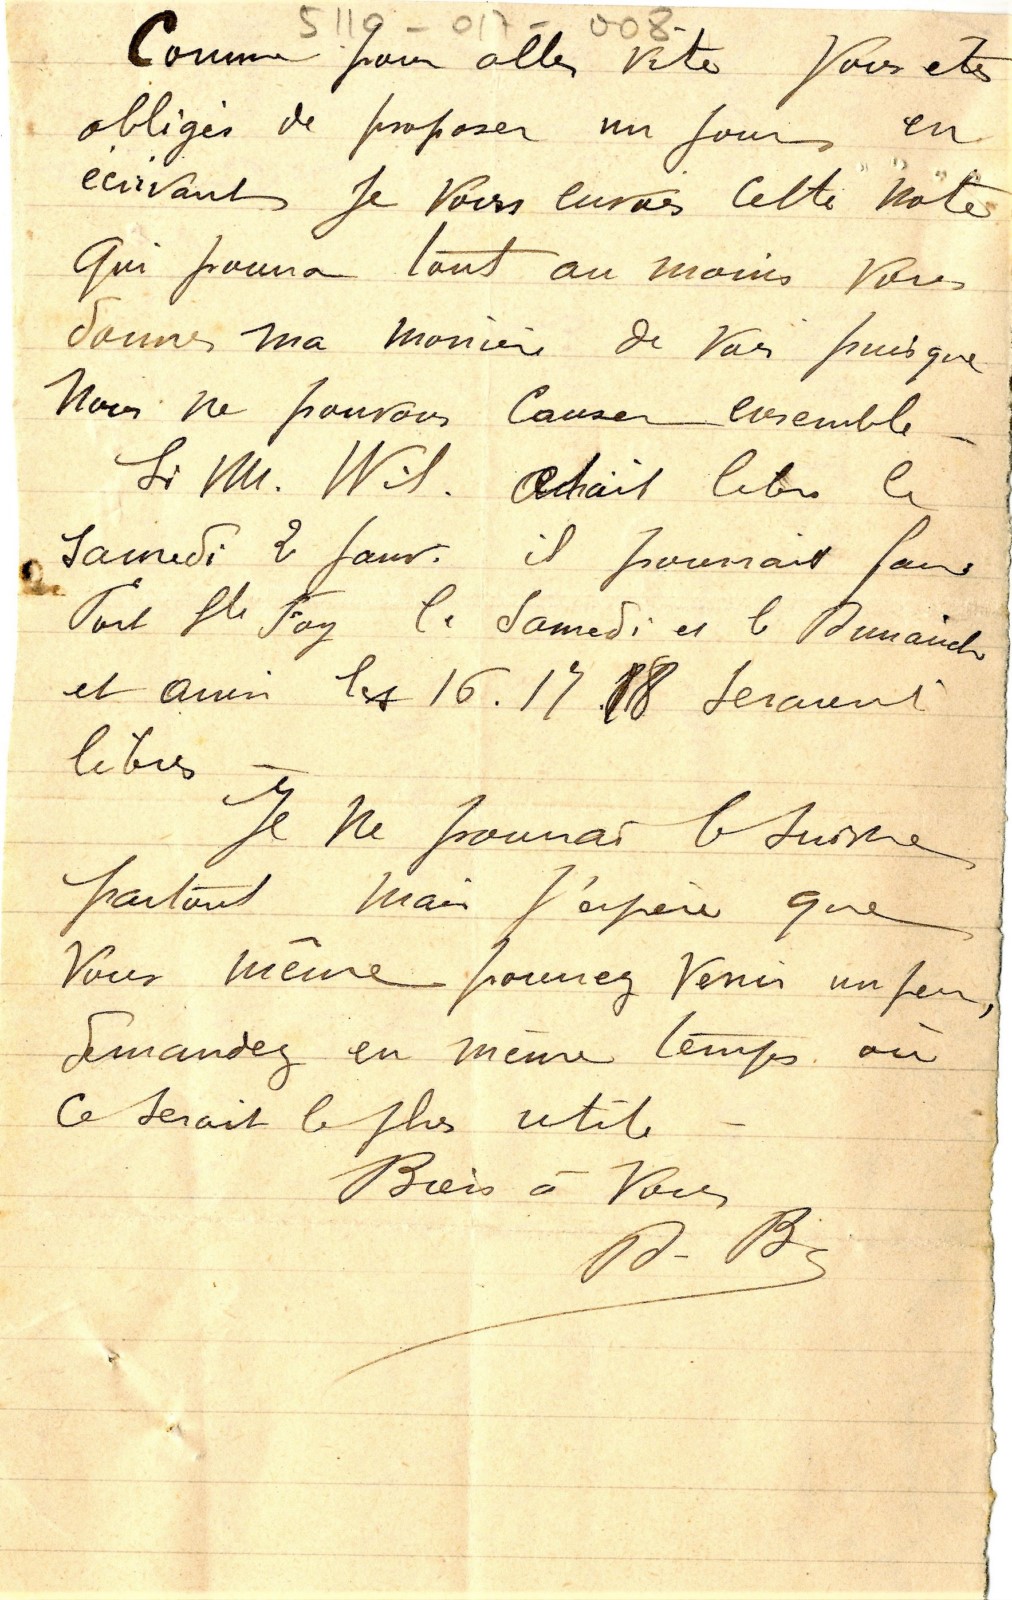 5119-017-008
Comme pour aller vite vous êtes
obligés de proposer un jour en
écrivant je vous envoie cette note
qui pourra tout au moins vous
donner ma manière de voir puisque
nous ne pouvons causer ensemble –
Si M. Wil. était libre le
samedi 2 janv. il pourrait faire
Port Ste Foy le samedi et le Dimanche
et ainsi les 16. 17. 18 seraient
libres –
Je ne pourrai le suivre
partout mais j'espère que
vous même pourrez venir un peu,
demandez en même temps où
ce serait le plus utile –
Bien à vous